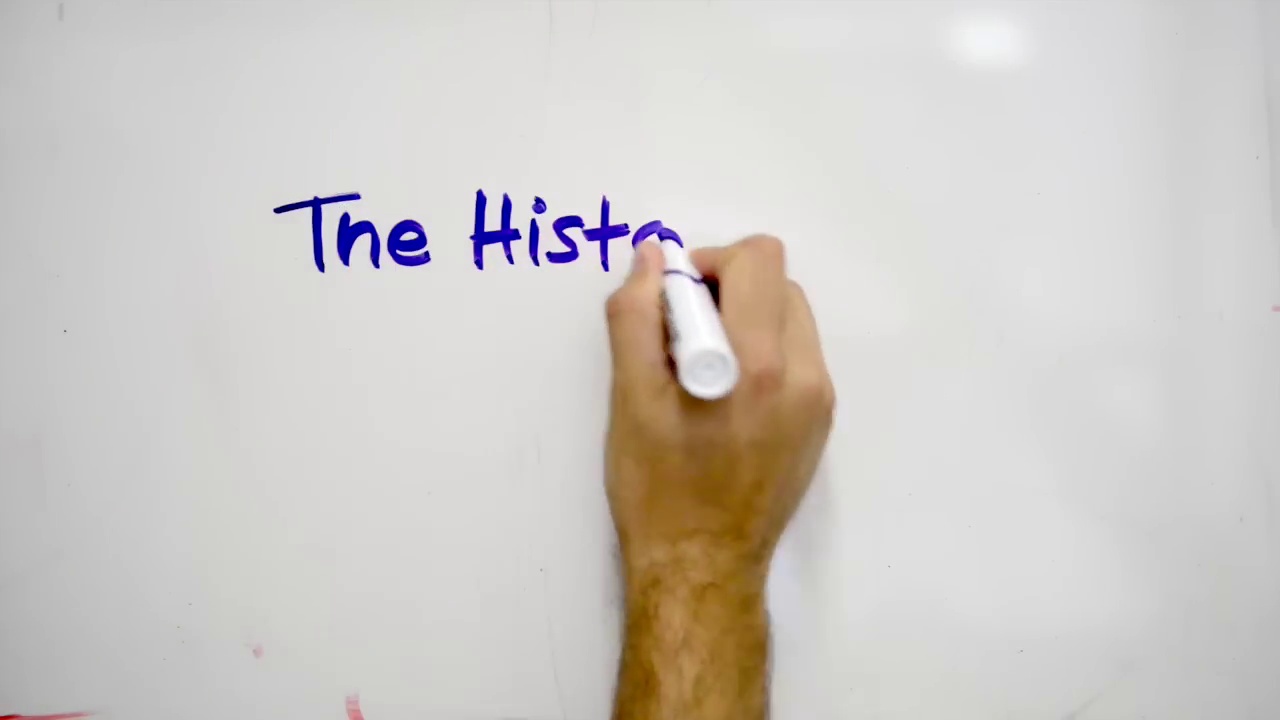 The Histo